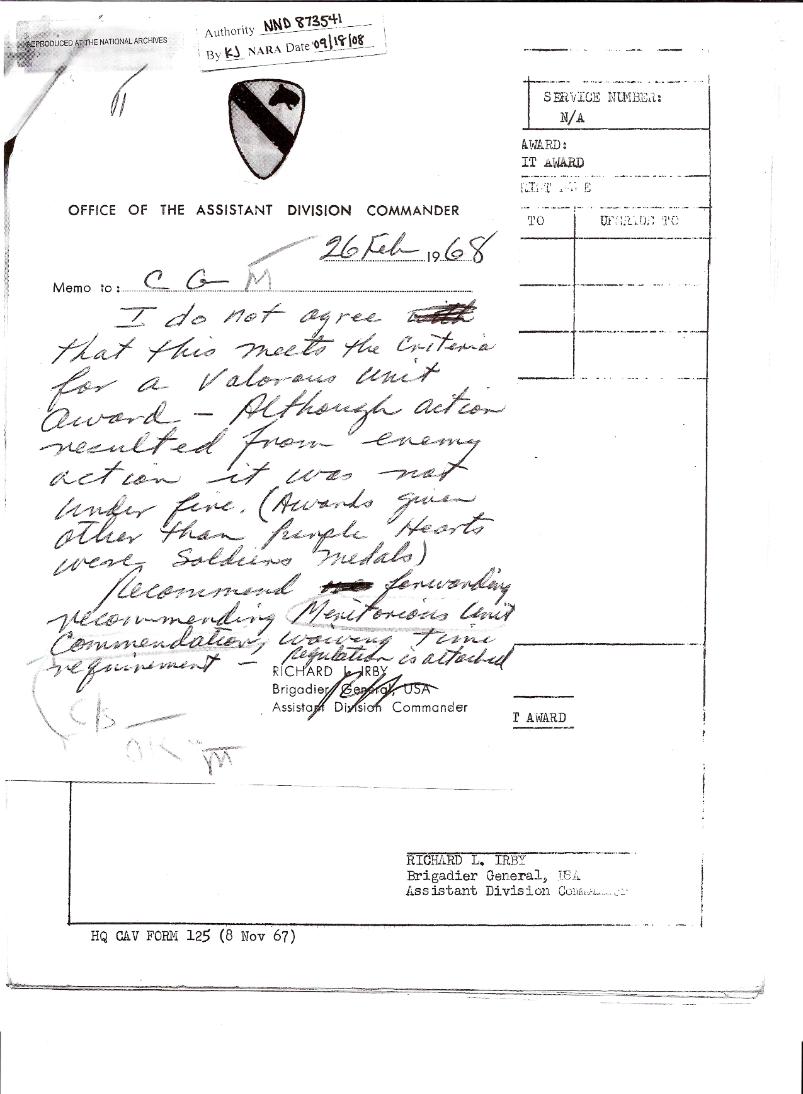 REPRODUCED AT THE NATIONAL ARCHIVES
Authority NND 873541
By KJ NARA Date 09/18/08
SERVICE NUMBER:
N/A
AWARD:
IT AWARD
TO UPGRADE TO
OFFICE OF THE ASSISTANT DIVISION COMMANDER
26 Feb 1968
Memo to: C G M
I do not agree
that this meets the Criteria
for a Valorous Unit
Award - Although action
resulted from enemy
action it was not
under fire. (Awards given
other than Purple Hearts
were Soldiers Medals)
Recommend forwarding
recommending Meritorious Unit
Commendation, waiving time
requirement - Regulation is attached
RICHARD L. IRBY
Brigadier General, USA
Assistant Division Commander
C/S
OK M
T AWARD
RICHARD L. IRBY
Brigadier General, USA
Assistant Division Commander
HQ CAV FORM 125 (8 Nov 67)